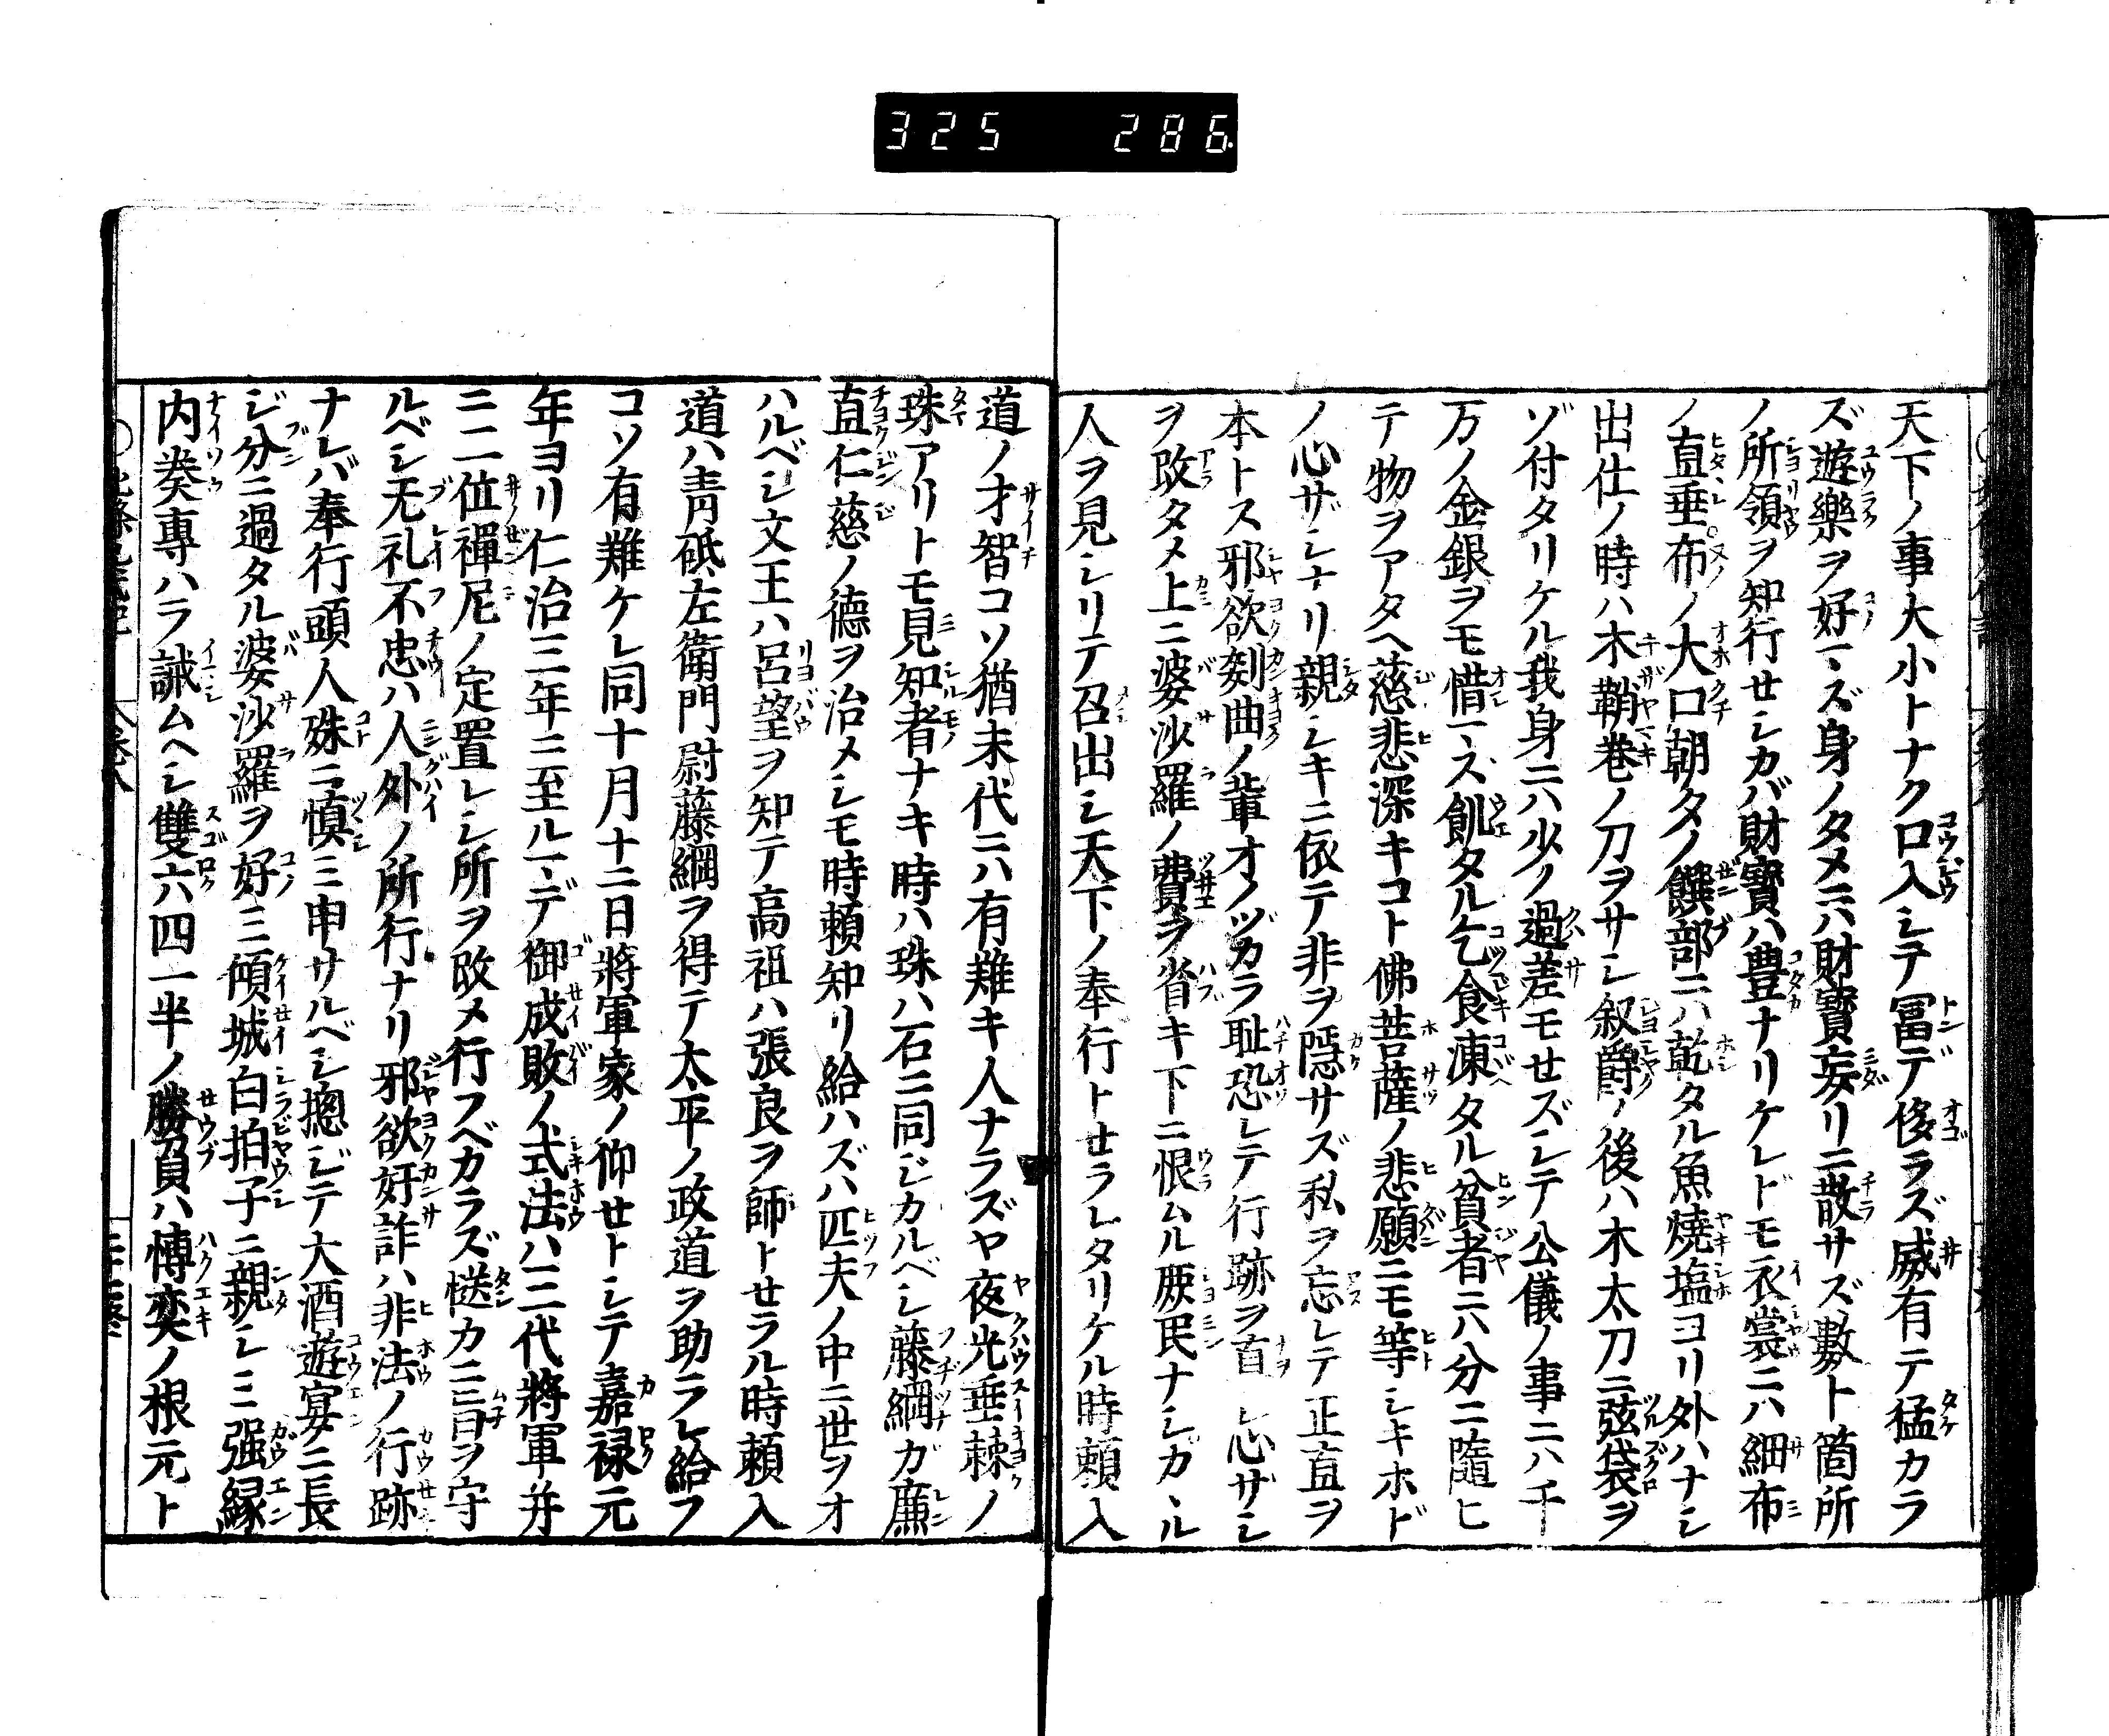 325 286
天下ノ事大小トナク口入シテ冨デ侈ラズ威有テ猛カラ
ズ遊樂ヲ好マズ身ノタメニハ財寳妄リニ散サズ數ト箇所
ノ所領ヲ知行セシカバ財寳ハ豊ナリケレドモ衣裳ニハ細布
ノ直垂布ノ大口朝夕ノ饌部ニハ乾タル魚燒塩ヨリ外ハナシ
出仕ノ時ハ木鞘巻ノ刀ヲサシ叙爵ノ後ハ木太刀ニ弦袋ヲ
ゾ付タリケル我身ニハ少ノ過差モセズシテ公儀ノ事ニハ千
万ノ金銀ヲモ惜マズ飢タル乞食凍タル貧者ニハ分ニ隨ヒ
テ物ヲアタヘ慈悲深キコト佛菩薩ノ悲願ニモ等シキホド
ノ心ザシナリ親シキニ依テ非ヲ隠サズ私ヲ忘レテ正直ヲ
本トス邪欲剡曲ノ輩オノヅカラ耻恐レテ行跡ヲ直シ心ザシ
ヲ改タメ上ニ婆沙羅ノ費ヲ省キ下ニ恨ムル庶民ナシカヽル
人ヲ見シリテ召出シ天下ノ奉行トセラレタリケル時頼入
道ノ才智コソ猶末代ニハ有難キ人ナラズヤ夜光垂棘ノ
珠アリトモ見知者ナキ時ハ珠ハ石ニ同ジカルベシ藤綱ガ廉
直仁慈ノ德ヲ治メシモ時頼知リ給ハズハ匹夫ノ中ニ世ヲオ
ハルベシ文王ハ呂望ヲ知テ高祖ハ張良ヲ師トセラル時頼入
道ハ青砥左衛門尉藤綱ヲ得テ太平ノ政道ヲ助ラレ給フ
コソ有難ケレ同十月十二日將軍家ノ仰セトシテ嘉禄元
年ヨリ仁治三年ニ至ルマデ御成敗ノ式法ハ三代將軍并
ニ二位禪尼ノ定置レシ所ヲ改メ行フベカラズ慥カニ旨ヲ守
ルベシ无礼不忠ハ人外ノ所行ナリ邪欲奸詐ハ非法ノ行跡
ナレバ奉行頭人殊ニ慎ミ申サルベシ摠ジテ大酒遊宴ニ長
ジ分ニ過タル婆沙羅ヲ好ミ傾城白拍子ニ親シミ强縁
内奏專ハラ誡ムヘシ雙六四一半ノ勝負ハ博奕ノ根元ト